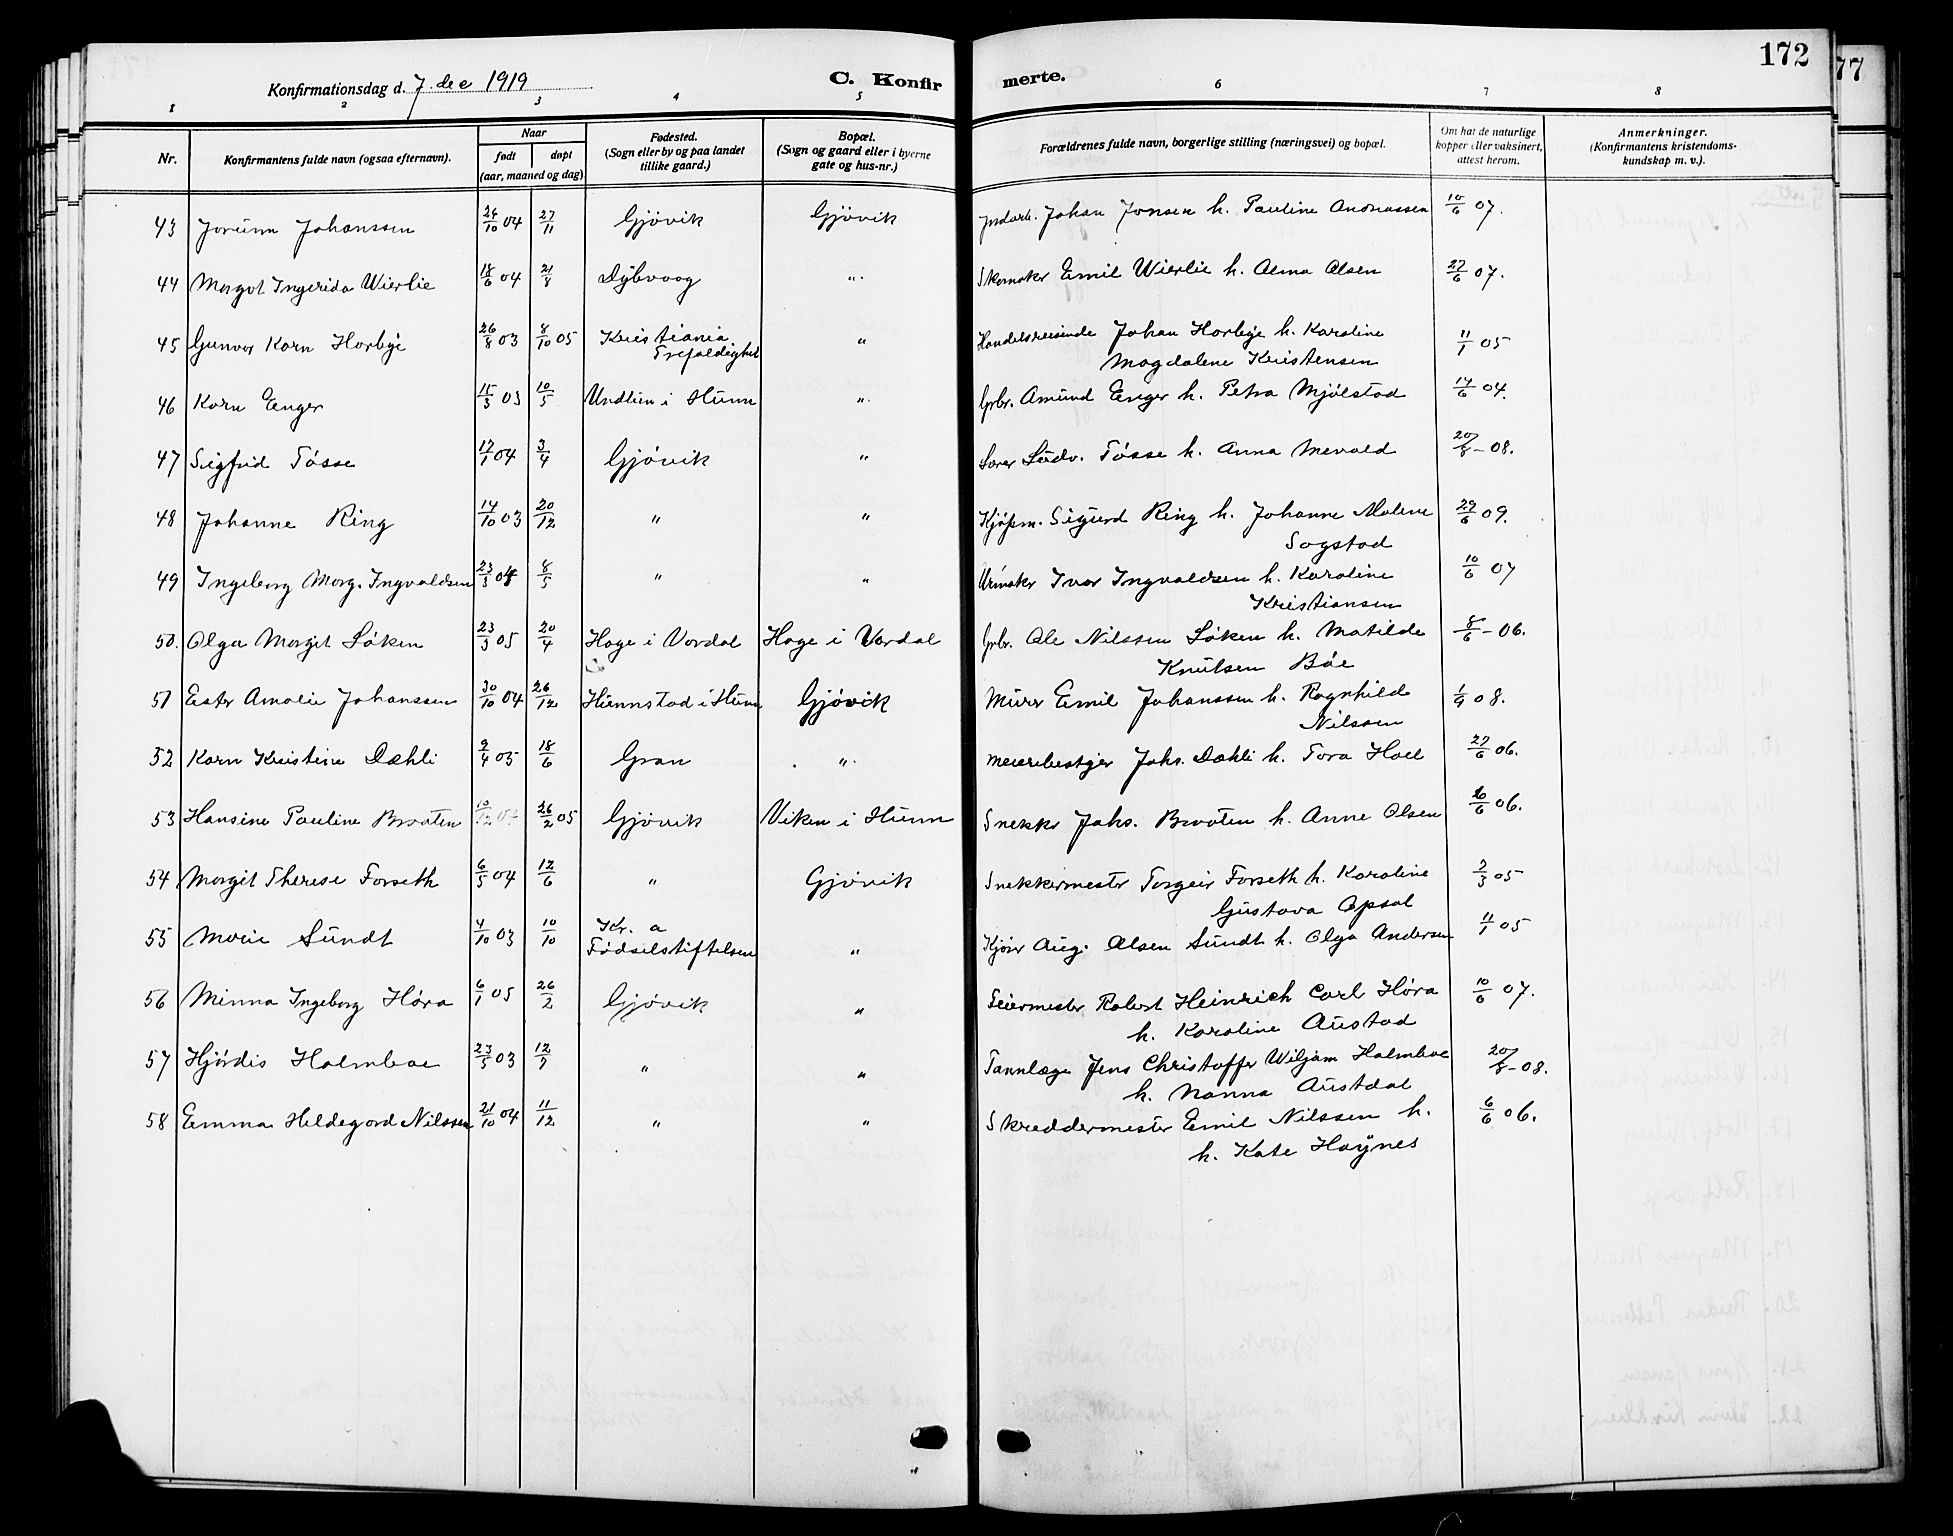 172
77
Konfirmationsdag d. 7. dec 1919
C. Konfirmerte.
1 2 3 4 5 6 7 8
Nr.
Konfirmantens fulde navn (ogsaa efternavn).
Naar
født døpt
(aar, maaned og dag)
Fødested.
(Sogn eller by og paa landet
tillike gaard.)
Bopæl.
(Sogn og gaard eller i byerne
gate og hus-nr.)
Forældrenes fulde navn, borgerlige stilling (næringsvei) og bopæl.
Om hat de naturlige
kopper eller vaksinert,
attest herom.
Anmerkninger.
(Konfirmantens kristendoms-
kundskap m. v.)
43 Jorunn Johanssen 24/10 04 27/11 Gjøvik Gjøvik Johan Jonsen h. Pauline Andreassen 10/6 07.
44 Margot Ingerida Wierlie 18/6 04 21/8 Dybvaag " Skomaker Emil Wierlie h. Alma Olsen 27/6 07.
45 Gunvor Karn Horbye 26/8 03 8/10 05 Kristiania " Handelsreisende Johan Horbye h. Karoline 11/1 05
Trefoldighet Magdalene Kristensen
46 Karn Enger 15/3 03 10/5 Undlien i Hunn " Grbr. Amund Enger h. Petra Mjølstad 14/6 04.
47 Sigfrid Tøsse 17/1 04 3/4 Gjøvik " Ludv. Tøsse h. Anna Mevold 20/8 - 08.
48 Johanne Ring 14/10 03 20/12 " " Kjøpm. Sigurd Ring h. Johanne Malene 29/6 09.
Sogstad
49 Ingeborg Marg. Ingvaldsen 23/3 04 8/5 " " Urmaker Ivar Ingvaldsen h. Karoline 10/6 07
Kristiansen
50. Olga Margit Løken 23/3 05 20/4 Hage i Vardal Hage i Vardal Grbr. Ole Nilssen Løken h. Matilde 8/6 - 06.
Knutsen Bøe
51 Ester Amalie Johanssen 30/10 04 26/12 Hunnstad i Hunn Gjøvik Murer Emil Johanssen h. Ragnhild 1/9 08.
Nilssen
52 Karn Kristine Dæhli 9/4 05 18/6 Gran " Meieribestyer Johs. Dæhli h. Tora Hoel 27/6 06.
53 Hansine Pauline Braaten 26/2 05 Gjøvik Viken i Hunn Snekker Johs. Braaten h. Anne Olsen 06.
54 Margit Therese Forseth 6/5 04 12/6 " Gjøvik Snekkermester Torgeir Forseth h. Karoline 2/3 05
Gustava Opsal
55 Marie Sundt 4/10 03 10/10 Kr. a " Kjører Aug. Olsen Sundt h. Olga Andersen 11/1 05
Fødselstiftelsen
56 Minna Ingeborg Høra 6/1 05 26/2 Gjøvik " Robert Heinrich Carl Høra 10/6 07.
h. Karoline Austad
57 Hjørdis Holmboe 23/5 03 12/7 " " Tannlæge Jens Christoffer Wiljam Holmboe 20/8 - 08.
h. Nanna Austdal
58 Emma Hildegard Nilssen 21/10 04 11/12 " " Skreddermester Emil Nilssen h. 6/6 06.
h. Kate Haynes